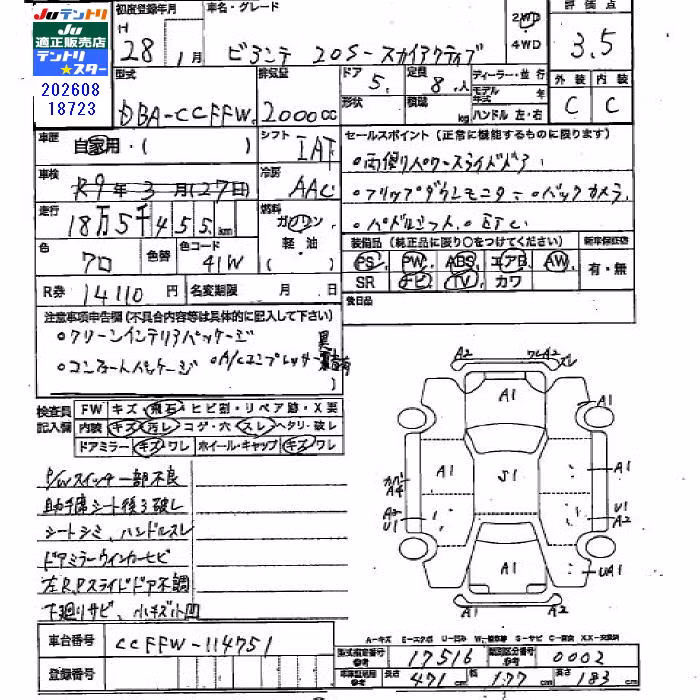 JUテントリ
JU
適正販売店
テントリ
★スター
202608
18723
初度登録年月
H 28 1月
車名・グレード
ビアンテ 20S-スカイアクティブ
2WD
4WD
評価点
3.5
型式
DBA-CCFFW
排気量
2000cc
ドア
5
定員
8人
形状
積載
kg
ディーラー・並行
モデル年式 年
ハンドル 左・右
外装 内装
C C
車歴
自家用・( )
シフト
IAT
セールスポイント(正常に機能するものに限ります)
・両側パワースライドドア
・フリップダウンモニター・バックカメラ
・パドルシフト・ETC
車検
R9年3月(27日)
冷房
AAC
走行
18万5千455km
燃料
ガソリン
軽油
( )
色
クロ
色替
色コード
41W
装備品(純正品に限り○をつけてください)
新車保証書
PS PW ABS エアB AW
SR ナビ TV カワ
有・無
R券 14110円
名変期限 月 日
後日品
注意事項申告欄(不具合内容等は具体的に記入して下さい)
・クリーンインテリアパッケージ
・コンフォートパッケージ ・A/Cコンプレッサー異音有
)
検査員
記入欄
FW キズ・飛石・ヒビ割・リペア跡・X要
内装 キズ・汚レ・コゲ・穴・スレ・ヘタリ・破レ
ドアミラー キズ・ワレ ホイール・キャップ キズ・ワレ
P/Wスイッチ一部不良
助手席シート後ろ破レ
シートシミ、ハンドルスレ
ドアミラーウインカーヒビ
左R.Pスライドドア不調
下廻りサビ、小キズ小凹
A2 ワレA2 スレ
A1
カバーA4
A1
S1
A1
A2
U1
U1
A2
A1
UA1
A2 A1
車台番号
CCFFW-114751
登録番号
A-キズ E-エクボ U-凹み W-補修跡 S-サビ C-腐食 XX-交換済
型式指定番号
参考
17516
類別区分番号
参考
0002
車検証記載
参考
長さ
471cm
幅
177cm
高さ
183cm